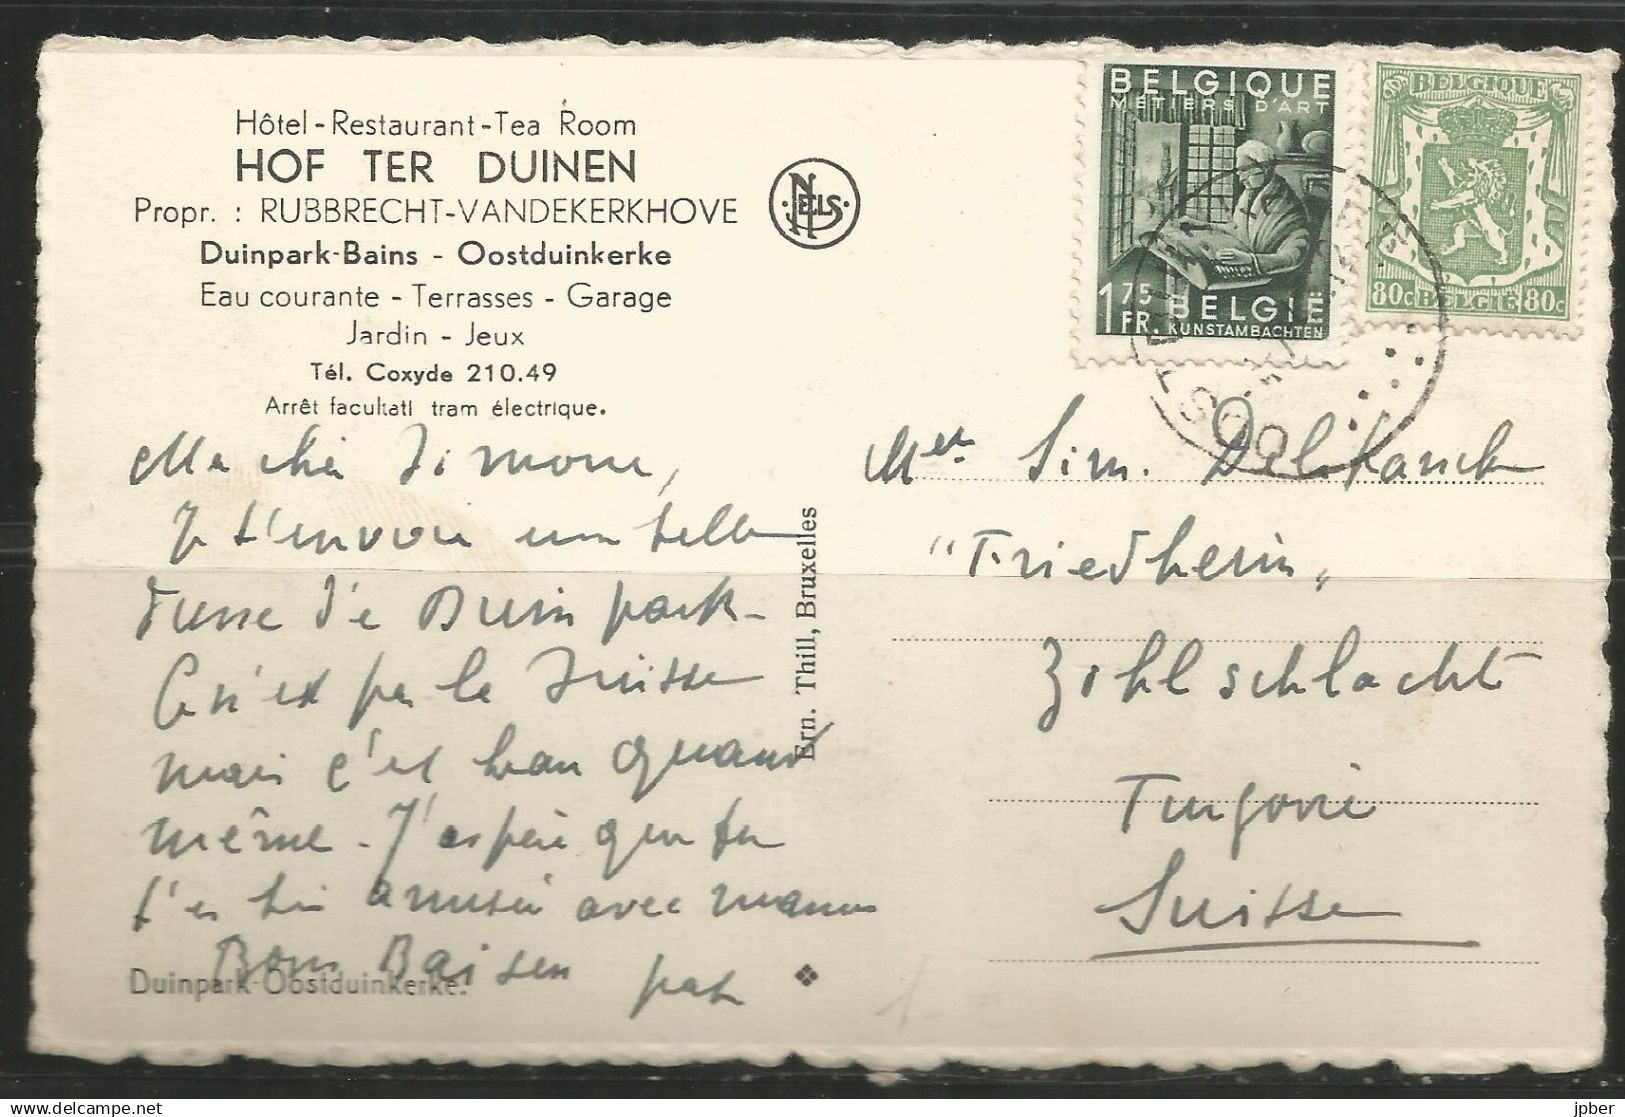 Hôtel-Restaurant-Tea Room
HOF TER DUINEN
Propr. : RUBBRECHT-VANDEKERKHOVE
NELS
Duinpark-Bains - Oostduinkerke
Eau courante - Terrasses - Garage
Jardin - Jeux
Tél. Coxyde 210.49
Arrêt facultati tram électrique.
BELGIQUE
MÉTIERS D'ART
1 75 FR.
BELGIË
KUNSTAMBACHTEN
BELGIQUE
80c BELGIË 80c
Ma chère Simone,
Je t'envoie une belle
vue de Duinpark-
Ce n'est pas la Suisse
mais c'est beau quand
même. J'espère que tu
t'es bien amusée avec maman
Bons Baisers
papa
Duinpark-Oostduinkerke.
Ern. Thill, Bruxelles
Sim.
"Friedheim"
Zihlschlacht
Turgovie
Suisse
jpber